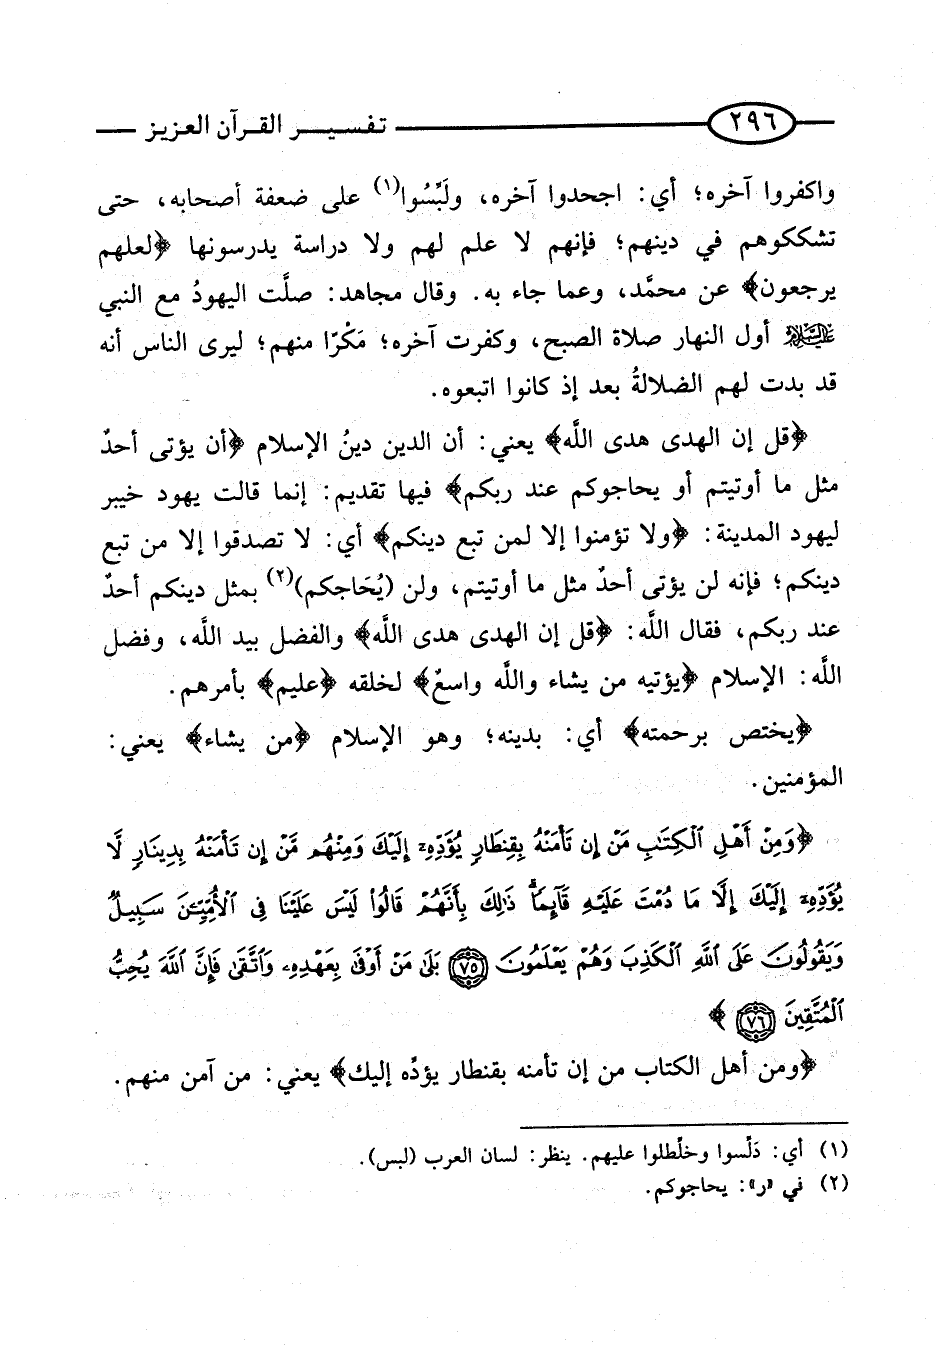 ٢٩٦ تفسير القرآن العزيز
واكفروا آخره؛ أي: اجحدوا آخره، ولَبِّسُوا(١) على ضعفة أصحابه، حتى
تشككوهم في دينهم؛ فإنهم لا علم لهم ولا دراسة يدرسونها ﴿لعلهم
يرجعون﴾ عن محمَّد، وعما جاء به. وقال مجاهد: صلَّت اليهودُ مع النبي
عليه السلام أول النهار صلاة الصبح، وكفرت آخره؛ مَكْرًا منهم؛ ليرى الناس أنه
قد بدت لهم الضلالةُ بعد إذ كانوا اتبعوه.
﴿قل إن الهدى هدى اللَّه﴾ يعني: أن الدين دينُ الإسلام ﴿أن يؤتى أحدٌ
مثل ما أوتيتم أو يحاجوكم عند ربكم﴾ فيها تقديم: إنما قالت يهود خيبر
ليهود المدينة: ﴿ولا تؤمنوا إلا لمن تبع دينكم﴾ أي: لا تصدقوا إلا من تبع
دينكم؛ فإنه لن يؤتى أحدٌ مثل ما أوتيتم، ولن (يُحَاجكم)(٢) بمثل دينكم أحدٌ
عند ربكم، فقال اللَّه: ﴿قل إن الهدى هدى اللَّه﴾ والفضل بيد اللَّه، وفضل
اللَّه: الإسلام ﴿يؤتيه من يشاء واللَّه واسعٌ﴾ لخلقه ﴿عليم﴾ بأمرهم.
﴿يختص برحمته﴾ أي: بدينه؛ وهو الإسلام ﴿من يشاء﴾ يعني:
المؤمنين.
﴿وَمِنْ أَهْلِ ٱلْكِتَٰبِ مَنْ إِن تَأْمَنْهُ بِقِنطَارٍ يُؤَدِّهِۦٓ إِلَيْكَ وَمِنْهُم مَّنْ إِن تَأْمَنْهُ بِدِينَارٍ لَّا
يُؤَدِّهِۦٓ إِلَيْكَ إِلَّا مَا دُمْتَ عَلَيْهِ قَآئِمًا ۗ ذَٰلِكَ بِأَنَّهُمْ قَالُوا۟ لَيْسَ عَلَيْنَا فِى ٱلْأُمِّيِّـۧنَ سَبِيلٌ
وَيَقُولُونَ عَلَى ٱللَّهِ ٱلْكَذِبَ وَهُمْ يَعْلَمُونَ ٧٥ بَلَىٰ مَنْ أَوْفَىٰ بِعَهْدِهِۦ وَٱتَّقَىٰ فَإِنَّ ٱللَّهَ يُحِبُّ
ٱلْمُتَّقِينَ ٧٦ ﴾
﴿ومن أهل الكتاب من إن تأمنه بقنطار يؤدِّه إليك﴾ يعني: من آمن منهم.
(١) أي: دَلِّسوا وخلِّطلوا عليهم. ينظر: لسان العرب (لبس).
(٢) في «ر»: يحاجوكم.